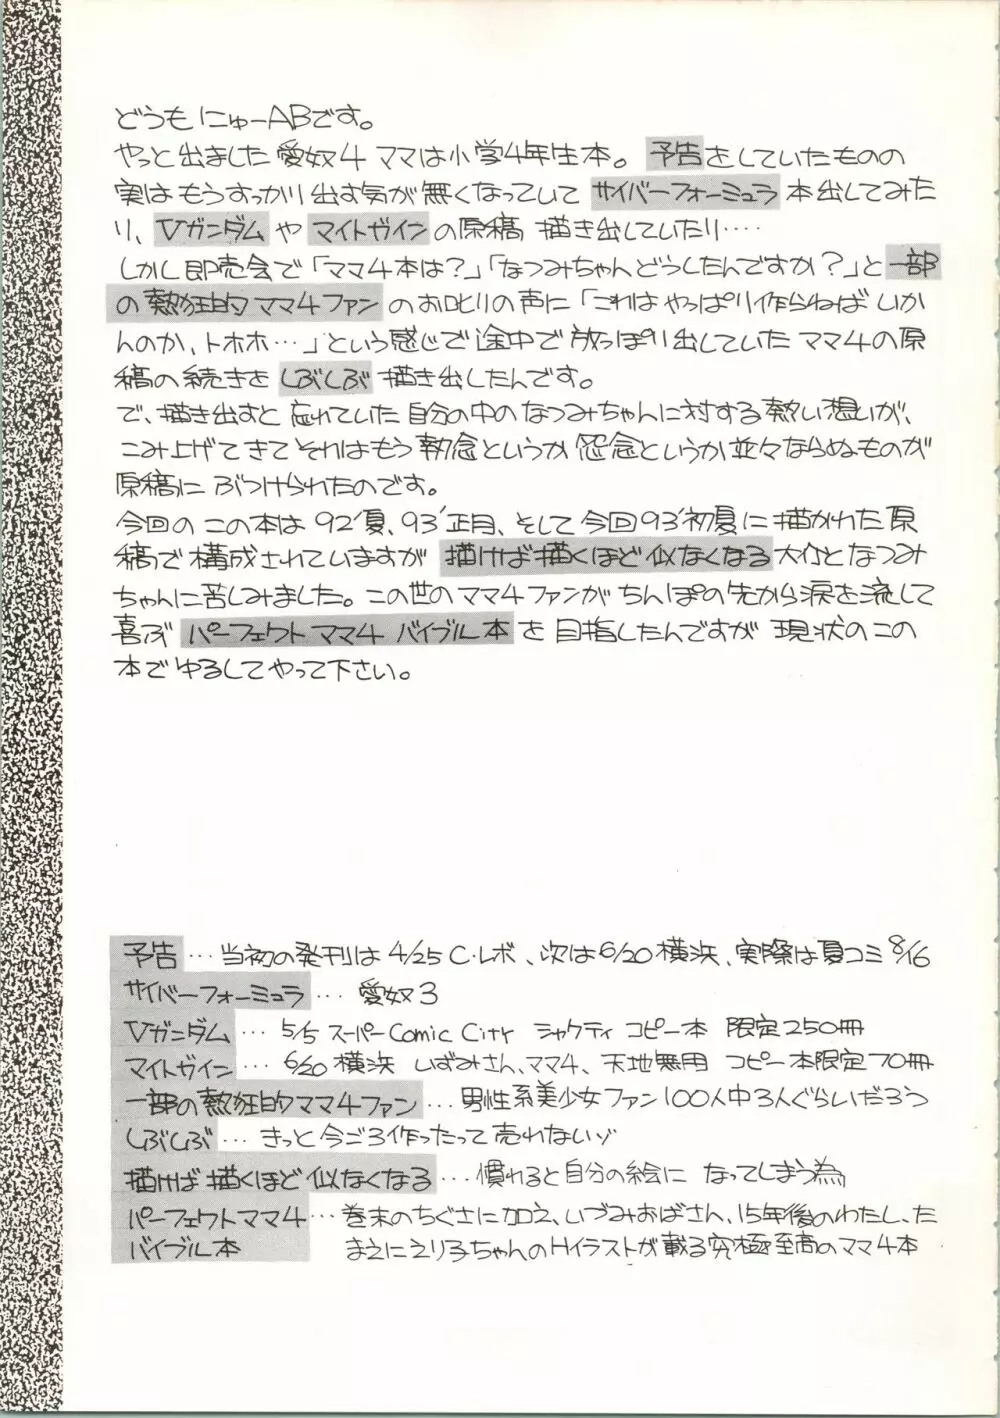 どうもにゅーABです。
やっと出ました愛奴4 ママは小学4年生本。予告をしていたものの
実はもうすっかり出す気が無くなっていて サイバーフォーミュラ 本出してみた
り、Vガンダム や マイトガイン の原稿 描き出していたり‥‥
しかし即売会で「ママ4本は?」「なつみちゃんどうしたんですか?」と 一部
の熱狂的ママ4ファン のお叱りの声に「これはやっぱり作らねば いか
んのか、トホホ…」という感じで途中で放っぽり出していたママ4の原
稿の続きを しぶしぶ 描き出したんです。
で、描き出すと忘れていた自分の中のなつみちゃんに対する熱い想いが、
こみ上げてきてそれはもう執念というか怨念というか並々ならぬものが
原稿に ぶつけられたのです。
今回の この本は 92'夏、93'正月、そして今回93'初夏に描かれた原
稿で構成されていますが 描けば描くほど似なくなる 大介となつみ
ちゃんに苦しみました。この世のママ4ファンが ちんぽの先から涙を流して
喜ぶ パーフェクトママ4 バイブル本 を目指したんですが 現状のこの
本でゆるしてやって下さい。
予告 … 当初の発刊は 4/25 C・レボ、次は6/20横浜、実際は夏コミ8/16
サイバーフォーミュラ … 愛奴3
Vガンダム … 5/5 スーパーComic City シャクティ コピー本 限定250冊
マイトガイン … 6/20 横浜 いずみさん、ママ4、天地無用 コピー本限定70冊
一部の熱狂的ママ4ファン … 男性系美少女ファン100人中3人ぐらいだろう
しぶしぶ … きっと今ごろ作ったって売れないゾ
描けば描くほど似なくなる … 慣れると自分の絵に なってしまう為
パーフェクトママ4 … 巻末のちぐさに加え、いづみおばさん、15年後のわたし、た
バイブル本 まえにえり子ちゃんのHイラストが載る究極至高のママ4本